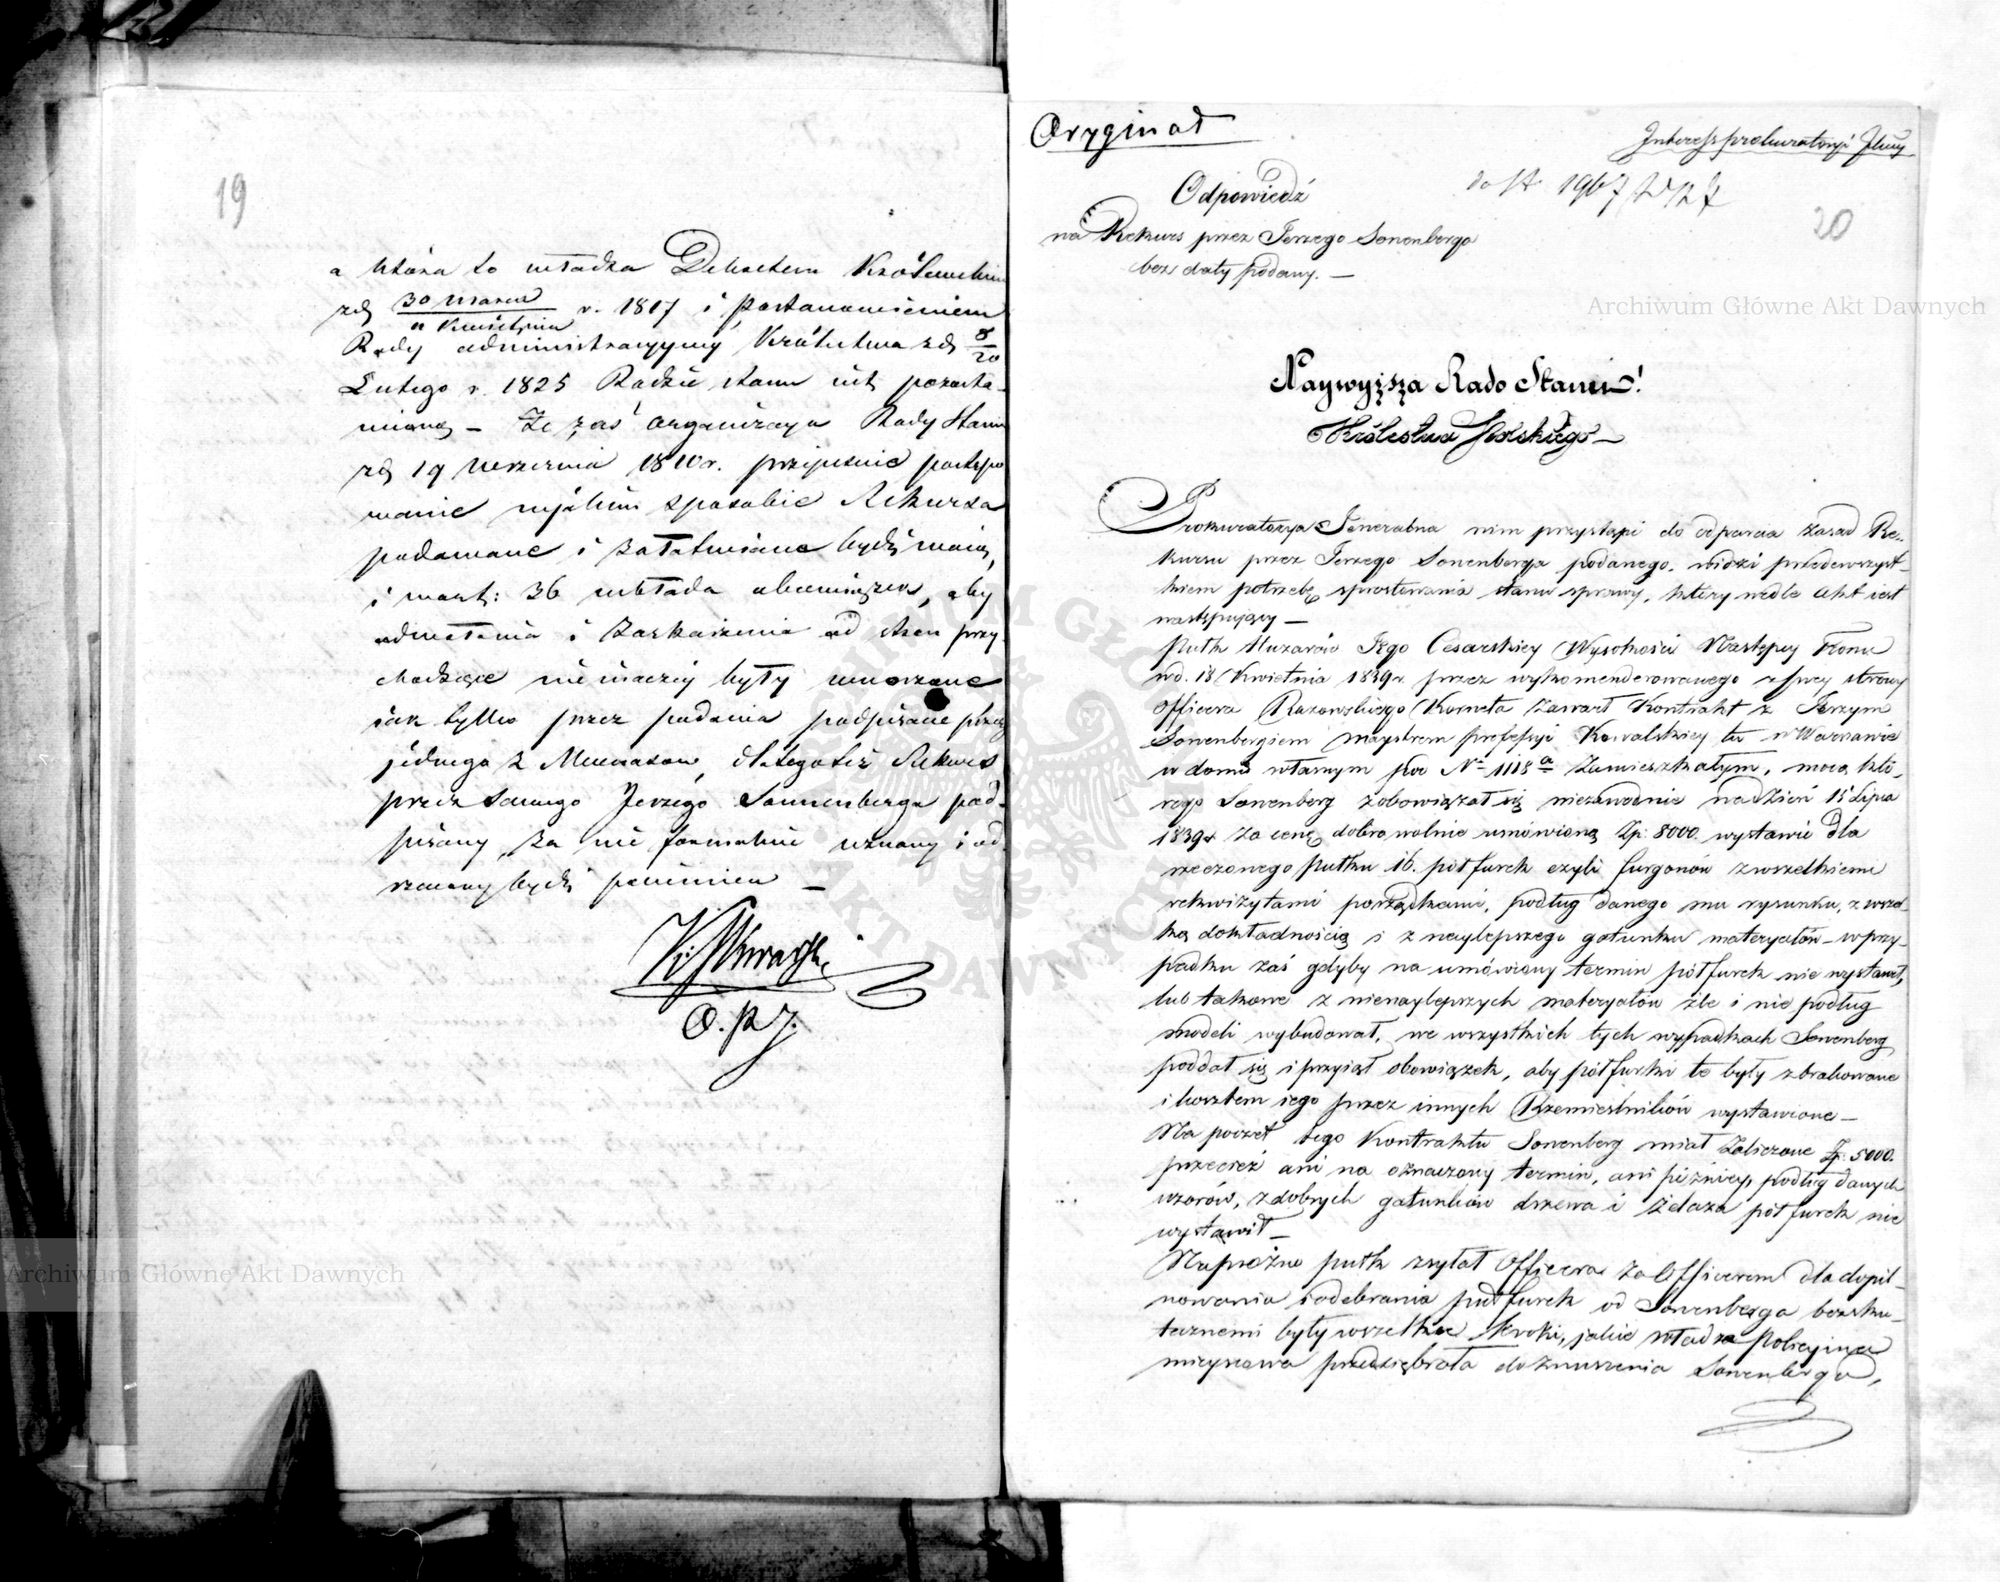 19
a która to władza Dekretem Królewskim
z dę 30 Marca / 11 Kwietnia r. 1817 i Postanowieniem
Rady administracyjnej Królestwa z dę 8/20
Lutego r. 1825 Radzie stanu iest pozosta-
wioną – Że zaś organizacya Rady Stanu
z dę 19 Września 1810 r. przepisuie postępo
wanie w jakim sposobie Rekursa
podawane i załatwiane bydź maią,
i w art: 36 wkłada obowiązek, aby
odwołania i zaskarżenia od stron przy-
chodzące nie inaczej były wnoszone
iak tylko przez podania podpisane przez
jednego z Mecenasów, dlategoteż Rekurs
przez samego Jerzego Sonnenberga pod-
pisany, za nie formalnie uznany i od
rzucony bydź powinien –
O. P. J.
Oryginał
Interess prokuratoryi
20
Odpowiedź
na Rekurs przez Jerzego Sonenberga
bez daty podany. –
Archiwum Główne Akt Dawnych
Naywyższa Rado Stanu!
Królestwa Polskiego –
Prokuratorya Jeneralna nim przystąpi do odparcia zasad Re-
kursu przez Jerzego Sonenberga podanego, widzi przedewszyst-
kiem potrzebę sprostowania stanu sprawy, który wedle akt iest
następujący –
Pułk Huzarów Jego Cesarskiey Wysokości Następcy Tronu
w d. 18 Kwietnia 1839 r. przez wykomenderowanego z swey strony
Officera Razowskiego Korneta zawarł Kontrakt z Jerzym
Sonenbergiem maystrem professyi Kowalskiey tu w Warszawie
w domu własnym pod No 1118 a zamieszkałym, mocą któ-
rego Sonenberg zobowiązał się niezawodnie na dzień 15 Lipca
1839 r. za cenę dobrowolnie umówioną Zp: 8000. wystawić dla
rzeczonego pułku 16. półfurek czyli furgonów z wszelkiemi
rekwizytami porządkami, podług danego mu rysunku, z wszel-
ką dokładnością i z naylepszego gatunku materyałów – w przy-
padku zaś gdyby na umówiony termin półfurek nie wystawił,
lub takowe z nienaylepszych materyałów źle i nie podług
modeli wybudował, we wszystkich tych wypadkach Sonenberg
poddał się i przyiął obowiązek, aby półfurki te były zbrakowane
i kosztem iego przez innych Rzemieślników wystawione –
Na poczet tego Kontraktu Sonenberg miał zaliczone Zp: 5000.
przecież ani na oznaczony termin, ani późniey, podług danych
wzorów, z dobrych gatunków drzewa i żelaza półfurek nie
wystawił –
Napróżno pułk zsyłał Officera za Officerem dla dopil-
nowania i odebrania półfurek od Sonenberga bezsku-
tecznemi były wszelkie kroki, jakie władza Policyina
mieyscowa przedsiębrała do zmuszenia Sonenberga,
Archiwum Główne Akt Dawnych
ARCHIWUM GŁÓWNE AKT DAWNYCH